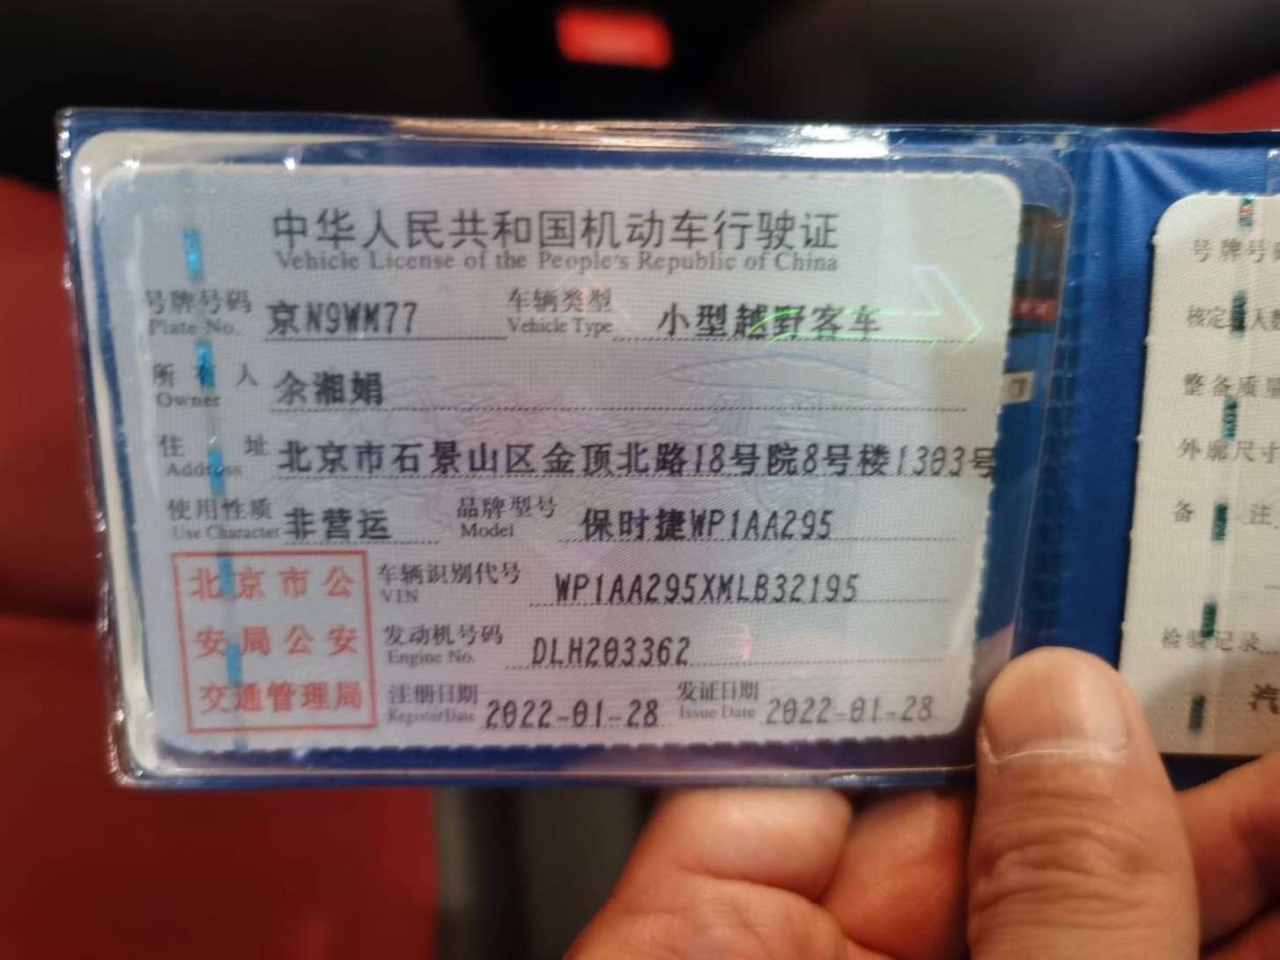 中华人民共和国机动车行驶证
Vehicle License of the People's Republic of China
号牌号码 京N9WM77 车辆类型 小型越野客车
Plate No. Vehicle Type
所有人 余湘娟
Owner
住址 北京市石景山区金顶北路18号院8号楼1303号
Address
使用性质 非营运 品牌型号 保时捷WP1AA295
Use Character Model
北京市公安局公安交通管理局
车辆识别代号 WP1AA295XMLB32195
VIN
发动机号码 DLH203362
Engine No.
注册日期 2022-01-28 发证日期 2022-01-28
Register Date Issue Date
号牌号
核定 人
整备质量
外廓尺寸
备注
检验记录
汽